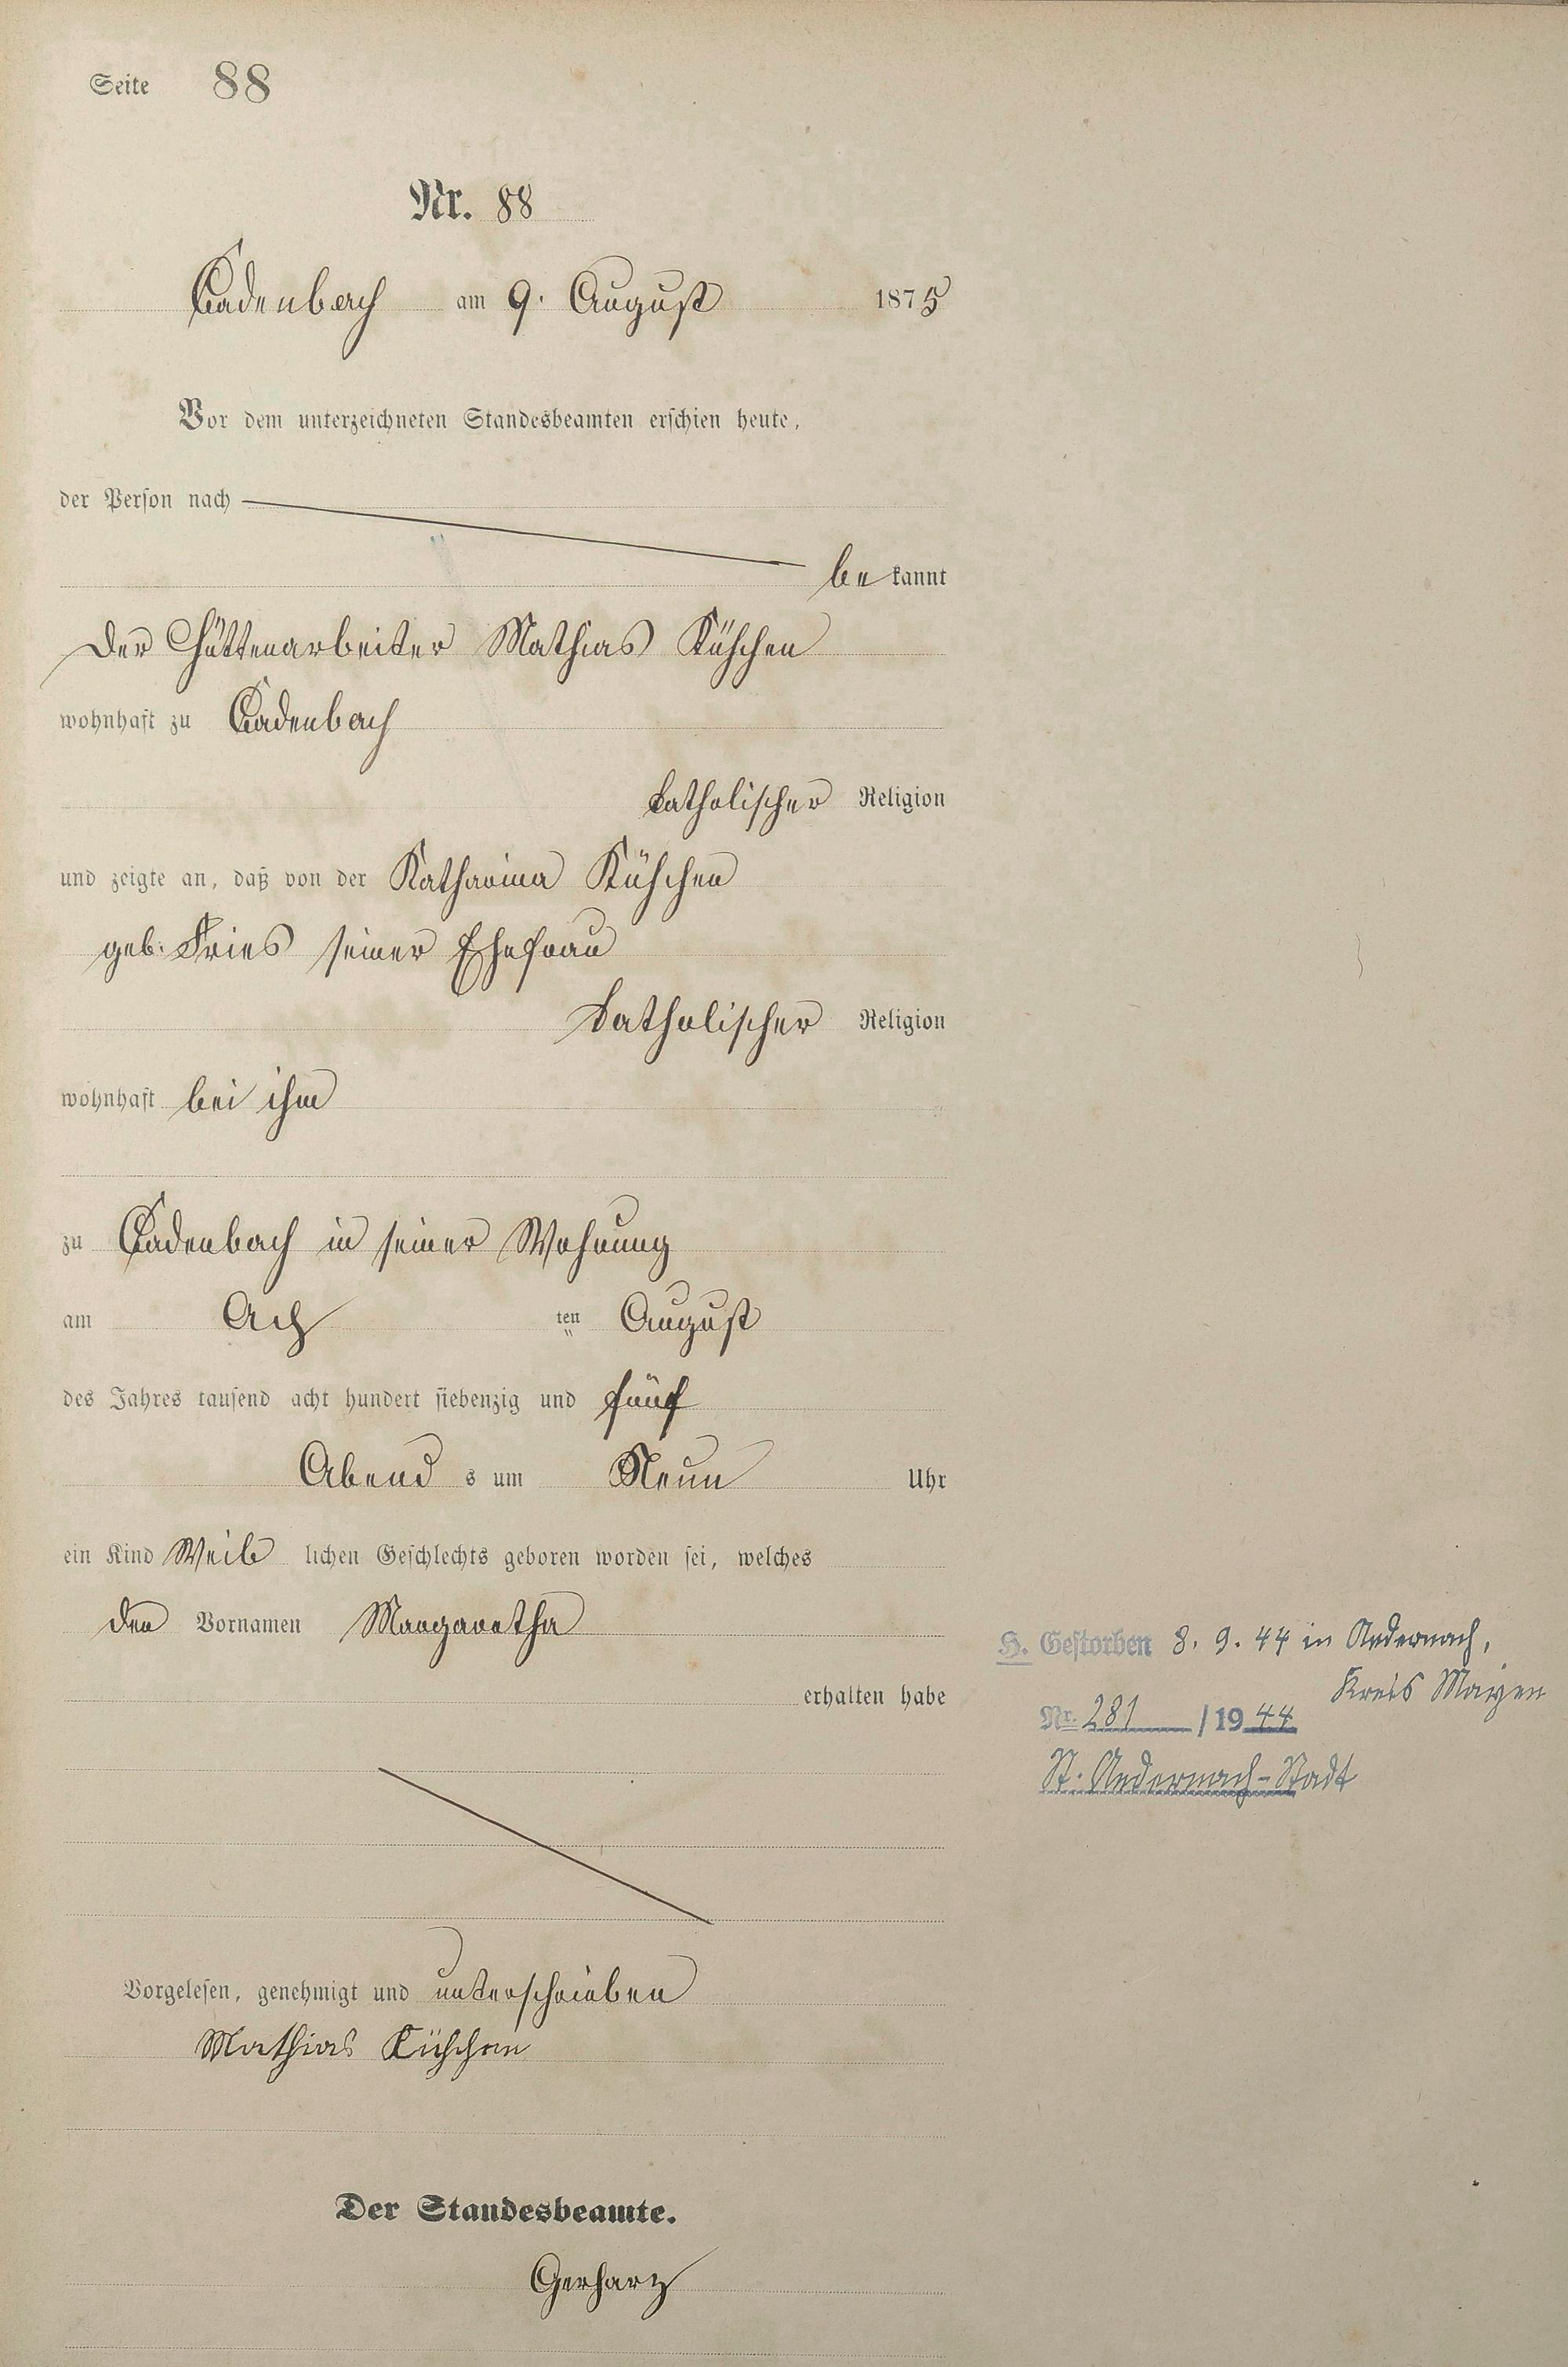 Seite 88
Nr. 88
Cadenbach am 9. August 1875
Vor dem unterzeichneten Standesbeamten erschien heute,
der Person nach
be kannt
der Hüttenarbeiter Mathias Küschen
wohnhaft zu Cadenbach
katholischer Religion
und zeigte an, daß von der Katharina Küschen
geb. Fries seiner Ehefrau
katholischer Religion
wohnhaft bei ihm
zu Cadenbach in seiner Wohnung
am Ach ten August
des Jahres tausend acht hundert siebenzig und fünf
Abend s um Neun Uhr
ein Kind Weib lichen Geschlechts geboren worden sei, welches
den Vornamen Margaretha
erhalten habe
H. Gestorben 8. 9. 44 in Andernach,
Kreis Mayen
Nr. 281 / 1944
St. Andernach-Stadt
Vorgelesen, genehmigt und unterschrieben
Mathias Küschen
Der Standesbeamte.
Gerharz